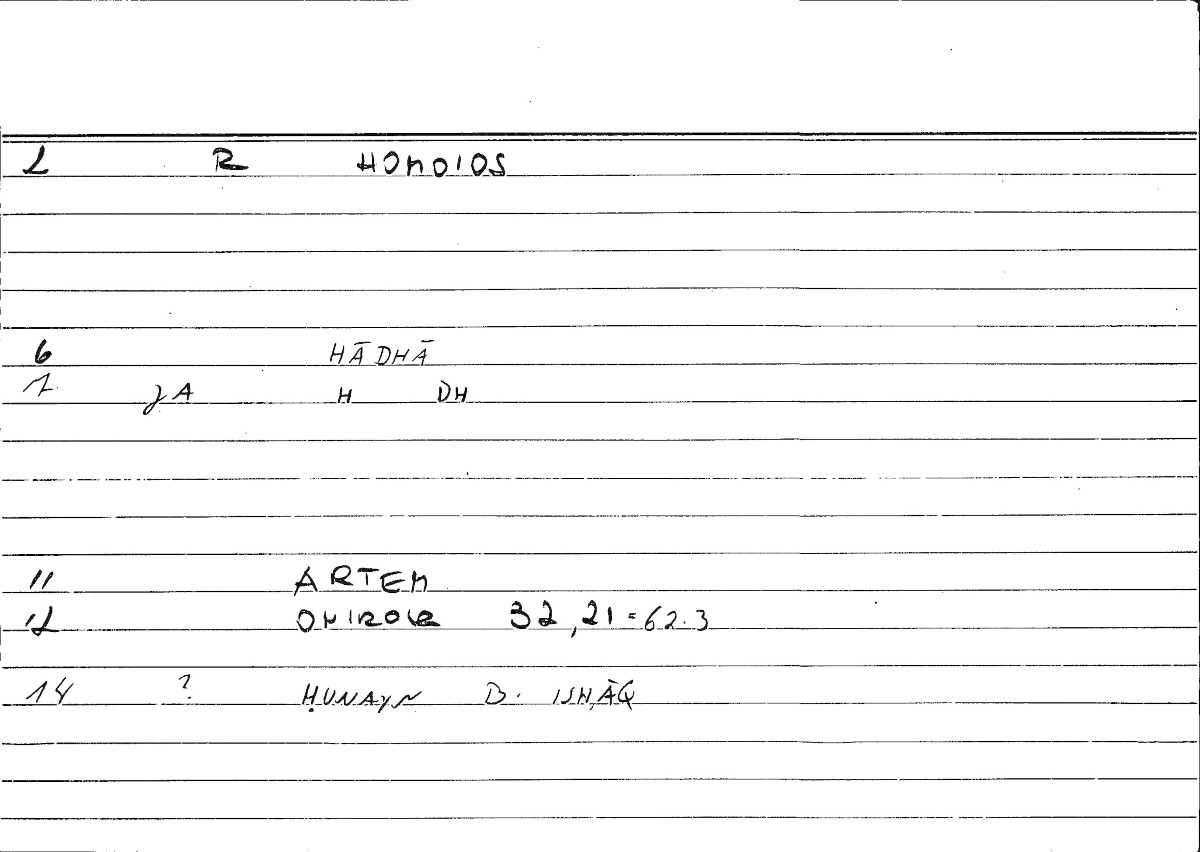 2 R HOMOIOS
6 HĀDHĀ
7 yA H DH
11 ARTEM
12 ONIROCR 32,21=62.3
14 ? ḤUNAyN B. ISḤĀQ